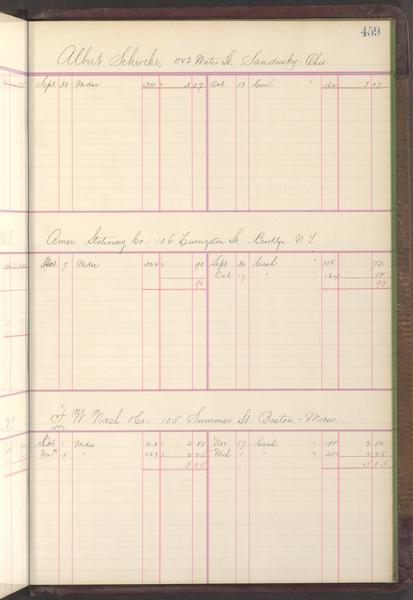 459
Albert Schwehr, 1142 Water St. Sandusky - Ohio.
Sept 30 Mdse 3 09 Oct 13 Cash " 164 3 09
Amer. Stationery Co - 106 Livingston St. Brooklyn - N.Y.
Oct 7 Mdse 324 90 Sept 20 Cash " 72
Oct 17 " " 164 18
90 90
W. Nash & Co - 105 Summer St Boston - Mass.
Oct 1 Mdse 2 80 Nov 17 Cash " 188 2 80
3 " 2 25 Mch 1 " " 2 25
5 05 5 05